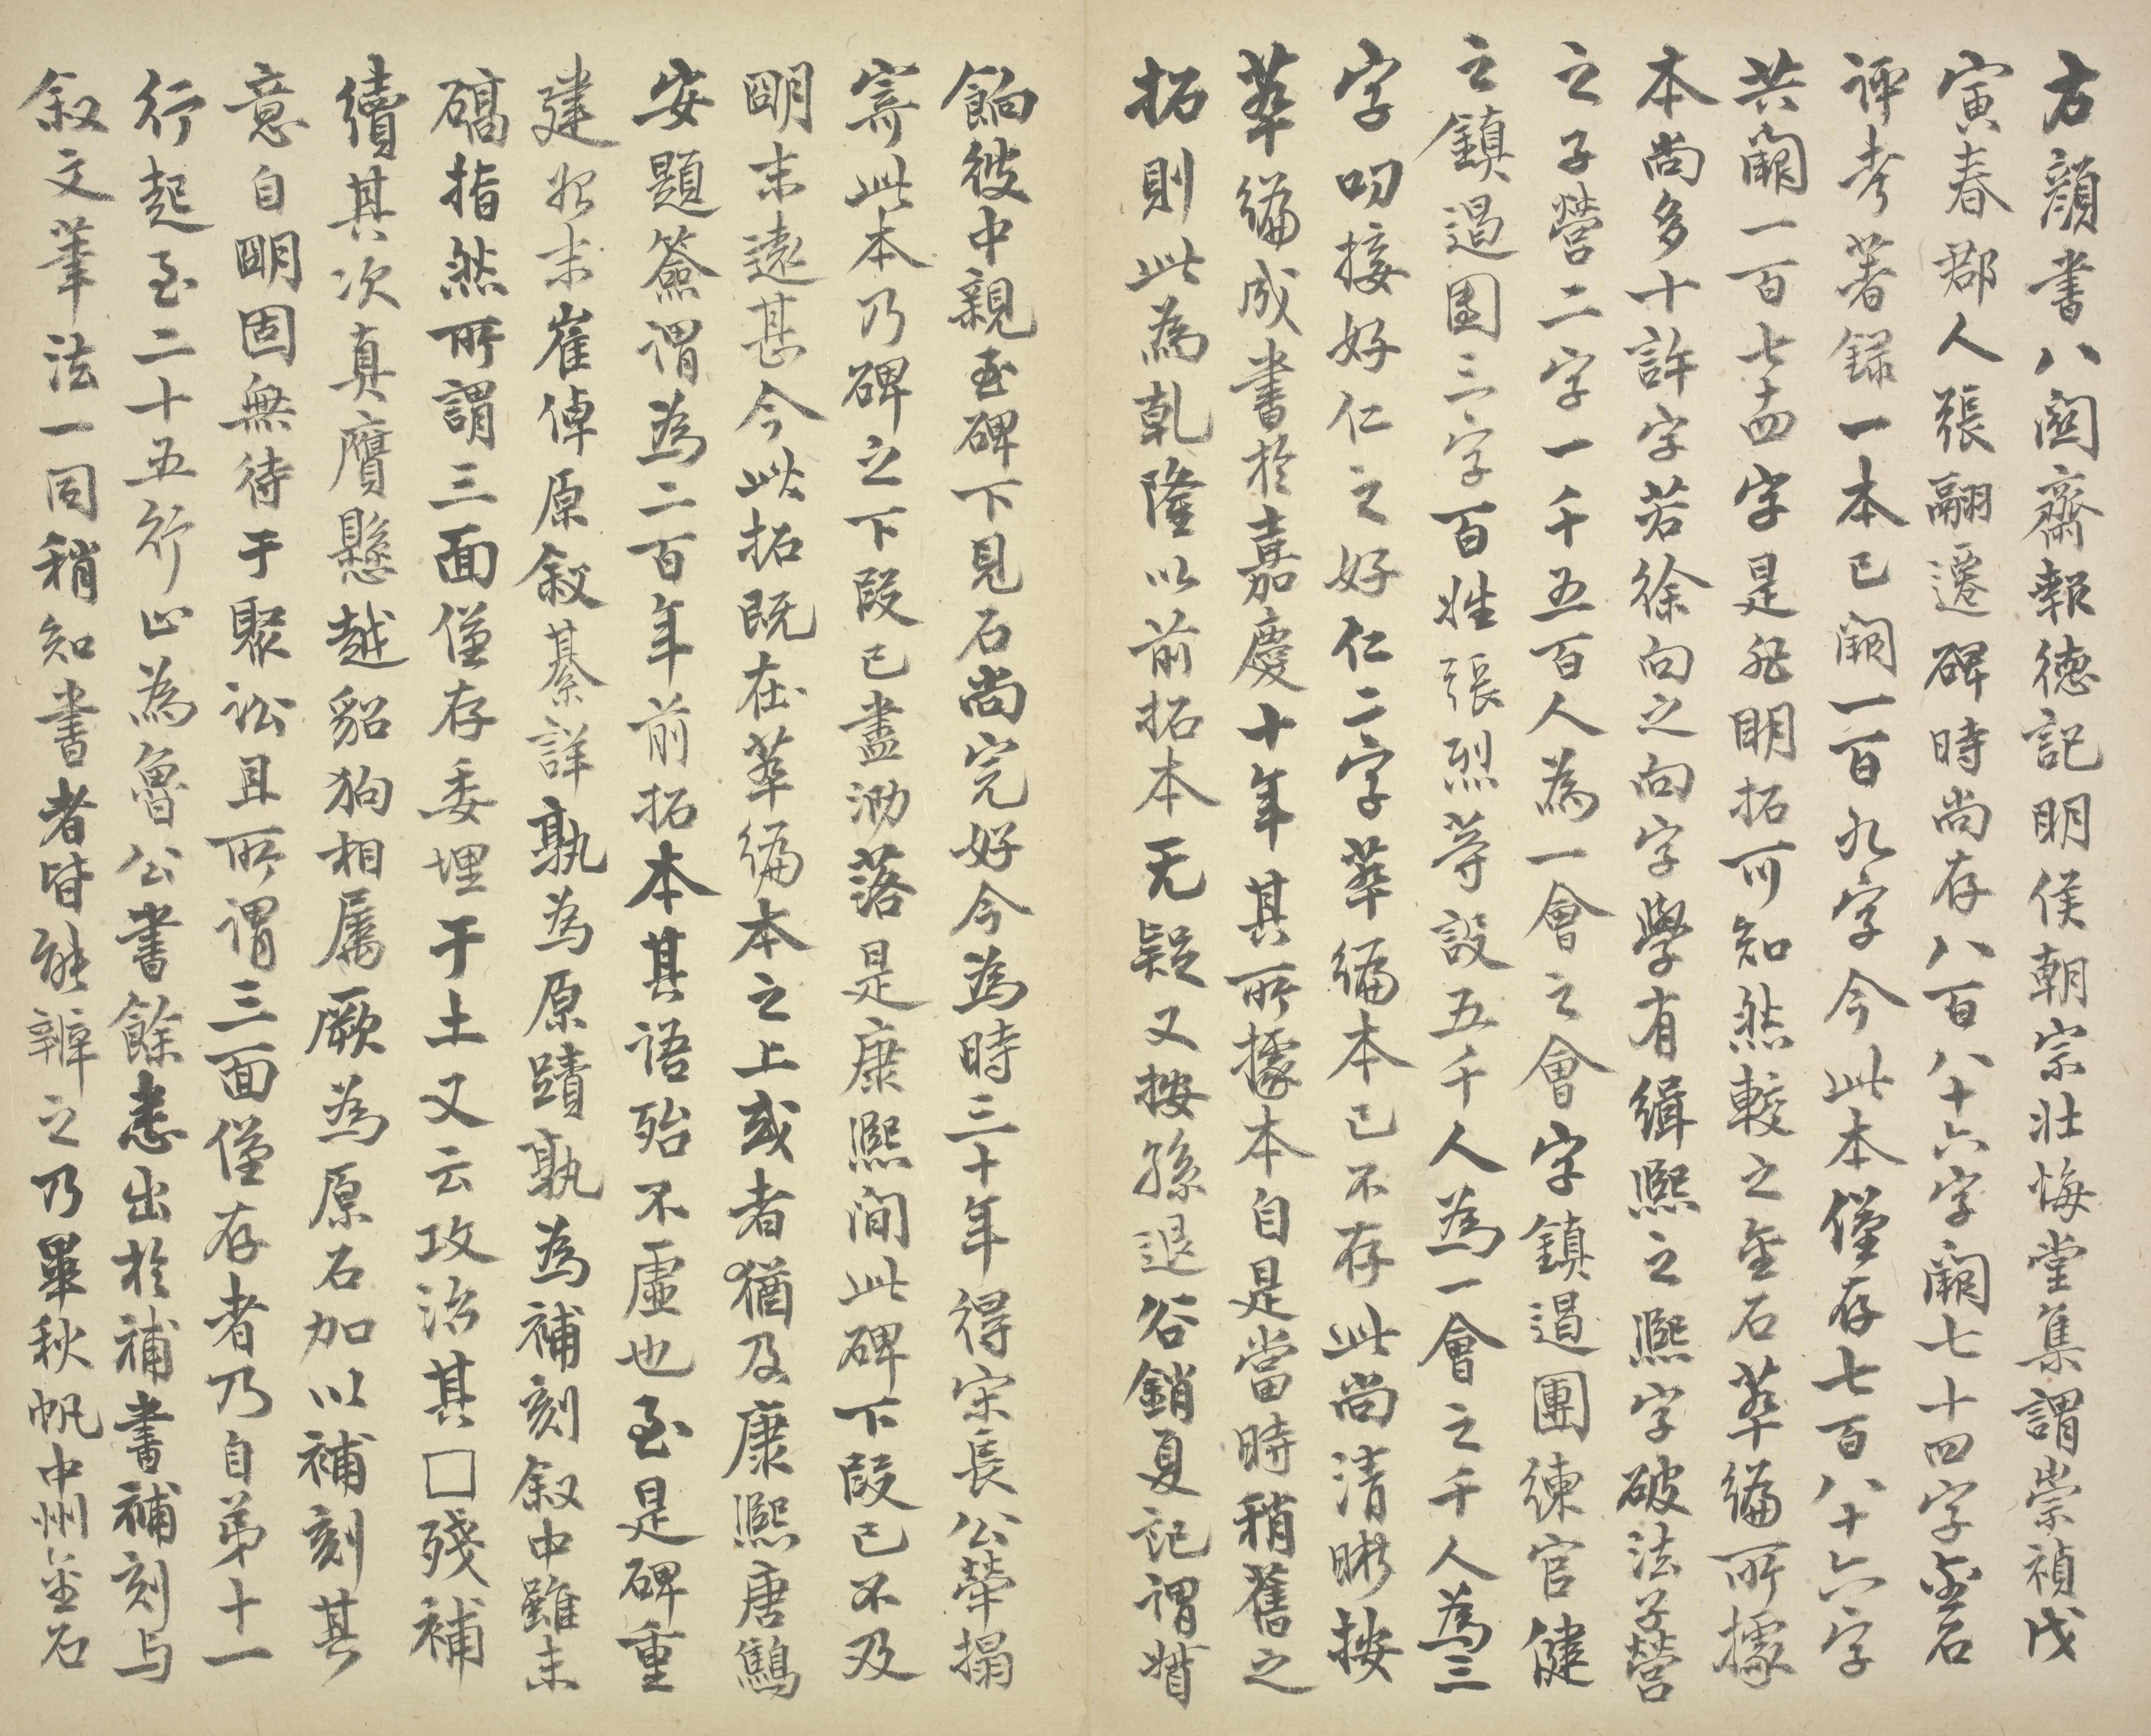 右顏書八關齋報德記明侯朝宗壯悔堂集謂崇禎戊
寅春郡人張翮遷碑時尚存八百八十六字闕七十四字金石
評考著録一本已闕一百九字今此本僅存七百八十六字
共闕一百七十四字是非明拓可知然較之金石萃編所據
本尚多十許字若徐向之向字學有緝熙之熙字破法子營
之子營二字一千五百人為一會之會字鎮遏團練官健
之鎮遏團三字百姓張烈等設五千人為一會之千人為三
字叨接好仁之好仁二字萃編本已不存此尚清晰按
萃編成書於嘉慶十年其所據本自是當時稍舊之
拓則此為乾隆以前拓本无疑又按孫退谷銷夏記謂督
餉彼中親至碑下見石尚完好今為時三十年得宋長公犖搨
寄此本乃碑之下段已盡泐落是康熙间此碑下段已不及
明末遠甚今此拓既在萃編本之上或者猶及康熙唐鷦
安題簽謂為二百年前拓本其语殆不虛也至是碑重
建始末崔倬原敘綦詳孰為原蹟孰為補刻叙中雖未
礄指然所謂三面僅存委埋于土又云攻治其□殘補
續其次真贗懸越貂狗相属厥為原石加以補刻其
意自明固無待于聚訟且所谓三面僅存者乃自弟十一
行起至二十五行止為魯公書餘悉出於補書補刻与
叙文筆法一同稍知書者皆能辨之乃畢秋帆中州金石